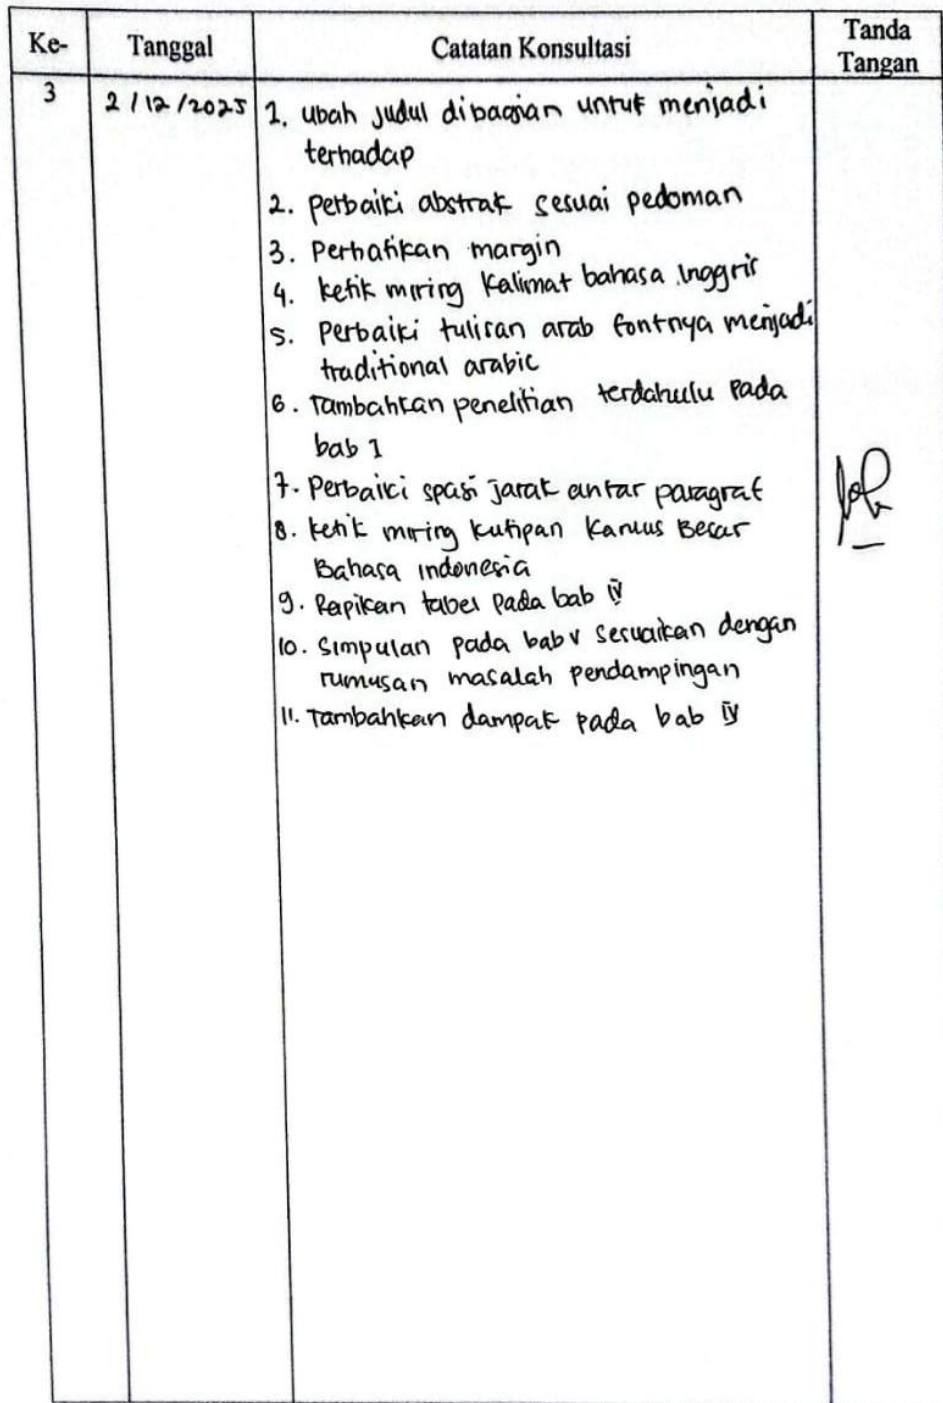 Ke- Tanggal Catatan Konsultasi Tanda Tangan
3 2/12/2025 1. Ubah judul dibagian untuk menjadi
terhadap
2. Perbaiki abstrak sesuai pedoman
3. Perhatikan margin
4. Ketik miring kalimat bahasa Inggris
5. Perbaiki tulisan arab fontnya menjadi
traditional arabic
6. Tambahkan penelitian terdahulu pada
bab 1
7. Perbaiki spasi jarak antar paragraf
8. Ketik miring kutipan Kamus Besar
Bahasa Indonesia
9. Rapikan tabel pada bab iv
10. Simpulan pada bab v sesuaikan dengan
rumusan masalah pendampingan
11. Tambahkan dampak pada bab iv